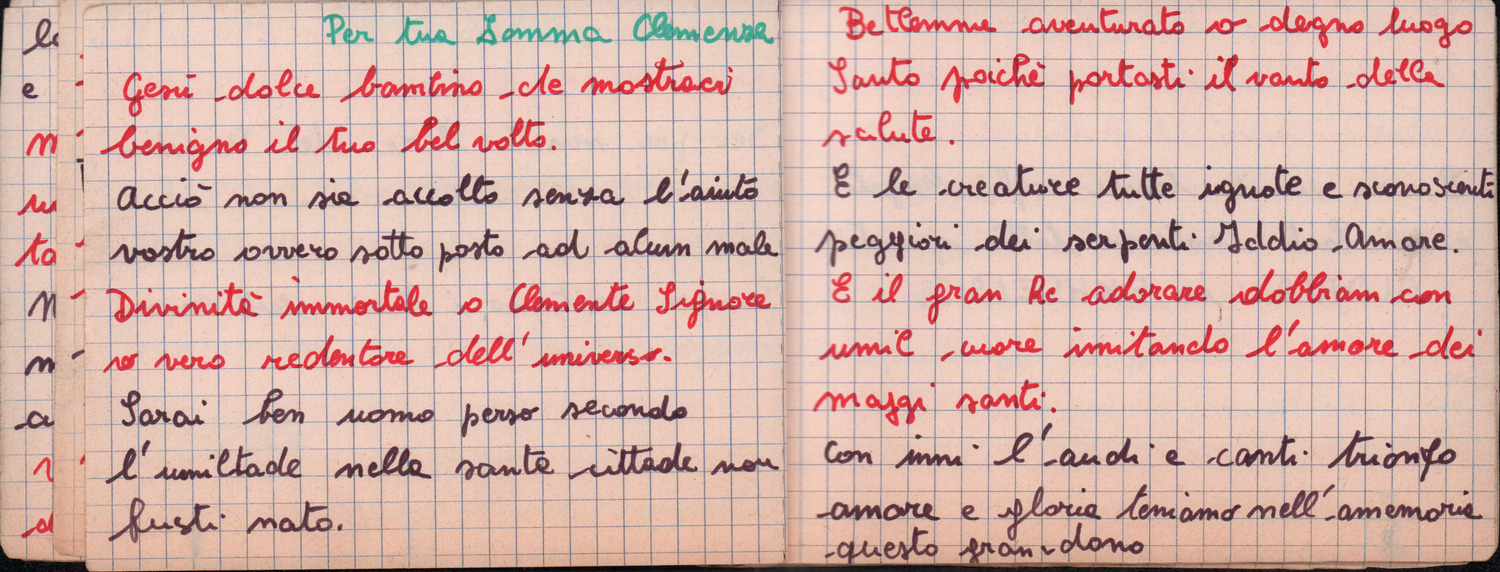 Per tua Somma Clemenza
Gesù dolce bambino de mostraci
benigno il tuo bel volto.
Acciò non sia accolto senza l'aiuto
vostro ovvero sotto posto ad alcun male
Divinità immortale o Clemente Signore
o vero redentore dell'universo.
Sarai ben uomo perso secondo
l'umiltade nella santa cittade non
fusti nato.
Betlemme aventurato o degno luogo
Santo poichè portasti il vanto della
salute.
E le creature tutte ignote e sconoscenti
peggiori dei serpenti Iddio Amare.
E il gran Re adorare dobbiam con
umil cuore imitando l'amore dei
maggi santi.
Con inni l'audi e canti trionfo
amore e gloria teniamo nell'amemoria
questo gran dono